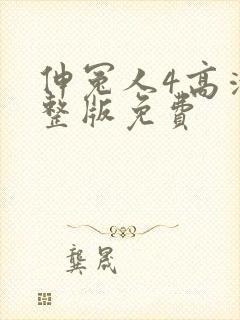 伸冤人4高清
整版免费
龔晟